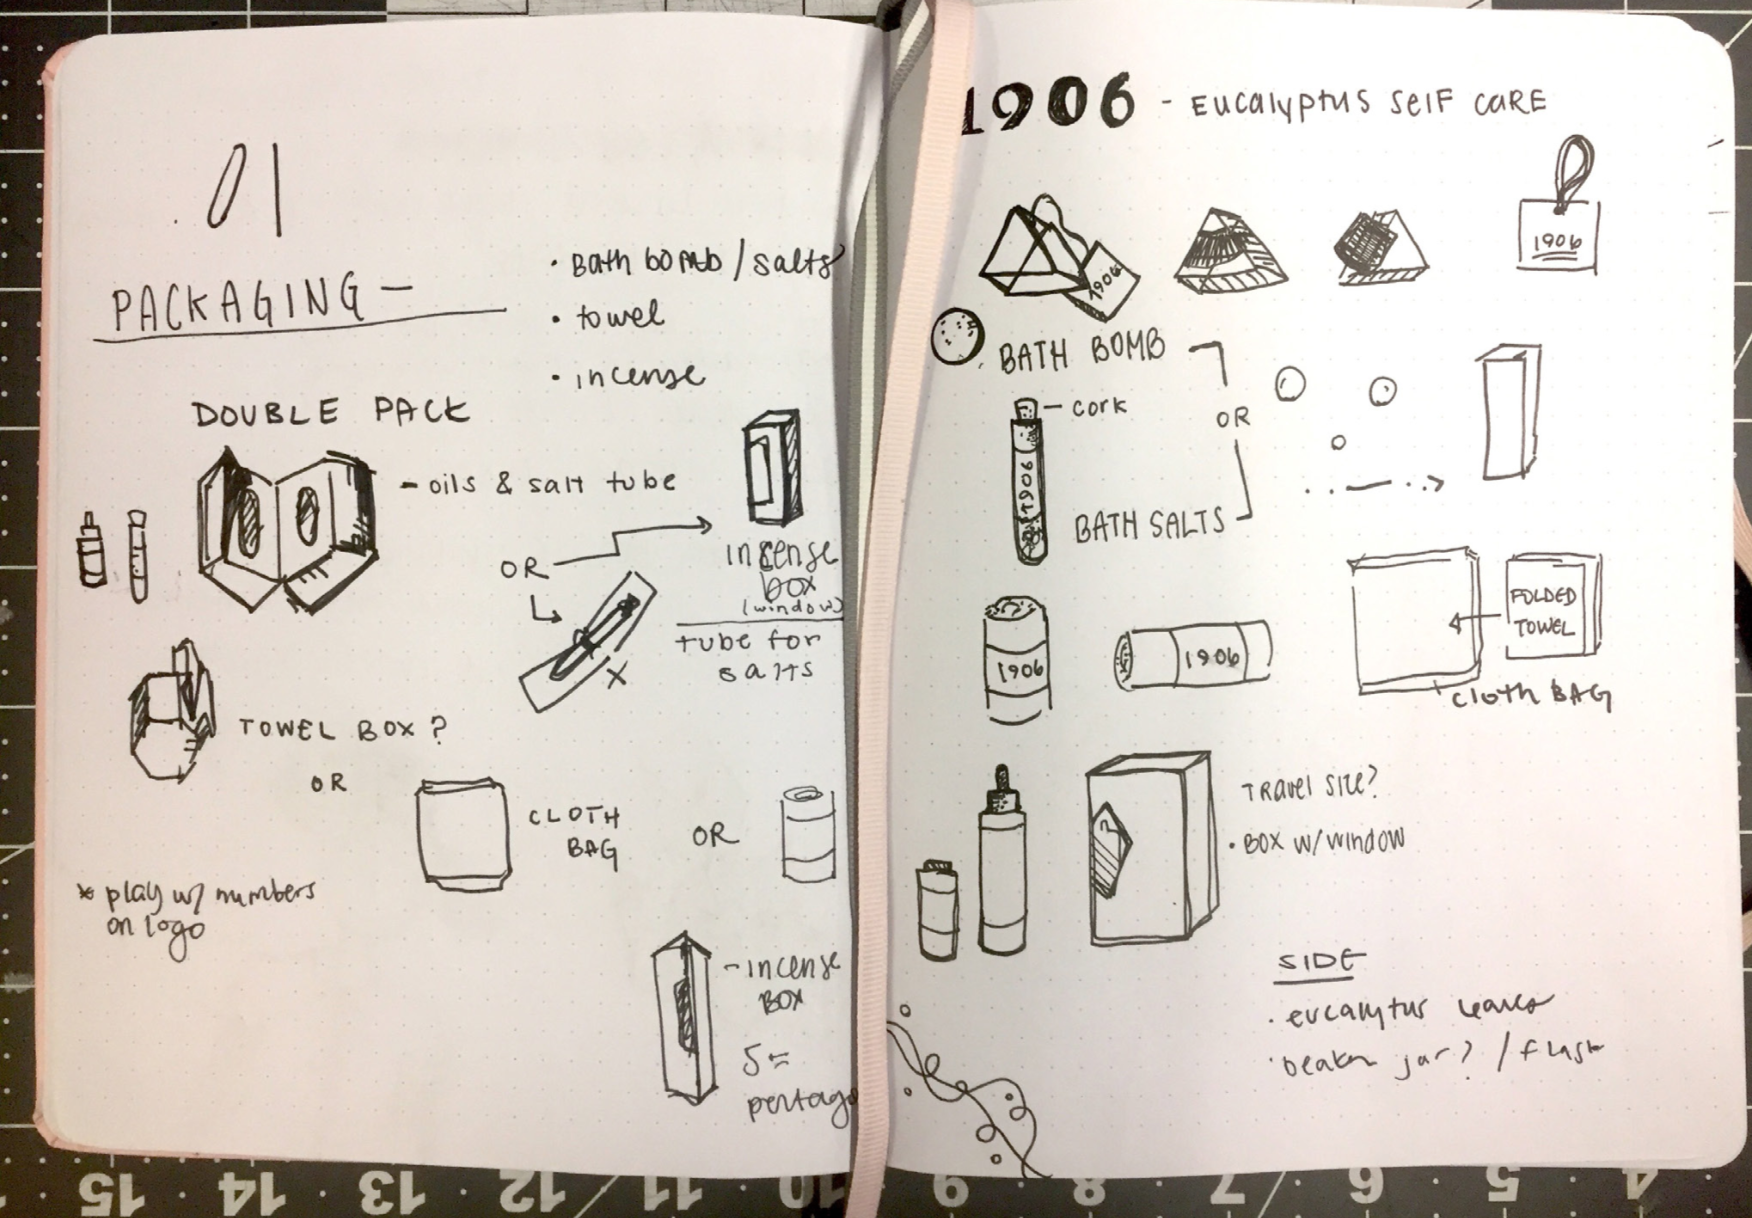 01
PACKAGING -
• Bath bomb / salts
• towel
• incense
DOUBLE PACK
- oils & salt tube
OR
incense
box
(window)
tube for
salts
x
TOWEL BOX?
OR
CLOTH
BAG
OR
* play w/ numbers
on logo
- incense
BOX
5 =
1906 - Eucalyptus Self Care
1906
1906
BATH BOMB
- cork
OR
1906
BATH SALTS
1906
1906
FOLDED
TOWEL
Cloth BAG
TRavel Size?
• BOX w/ window
SIDE
• eucalyptus leaves
• beaker jar? / flask
15 14 13 12 11 10 9 8 7 6 5 4